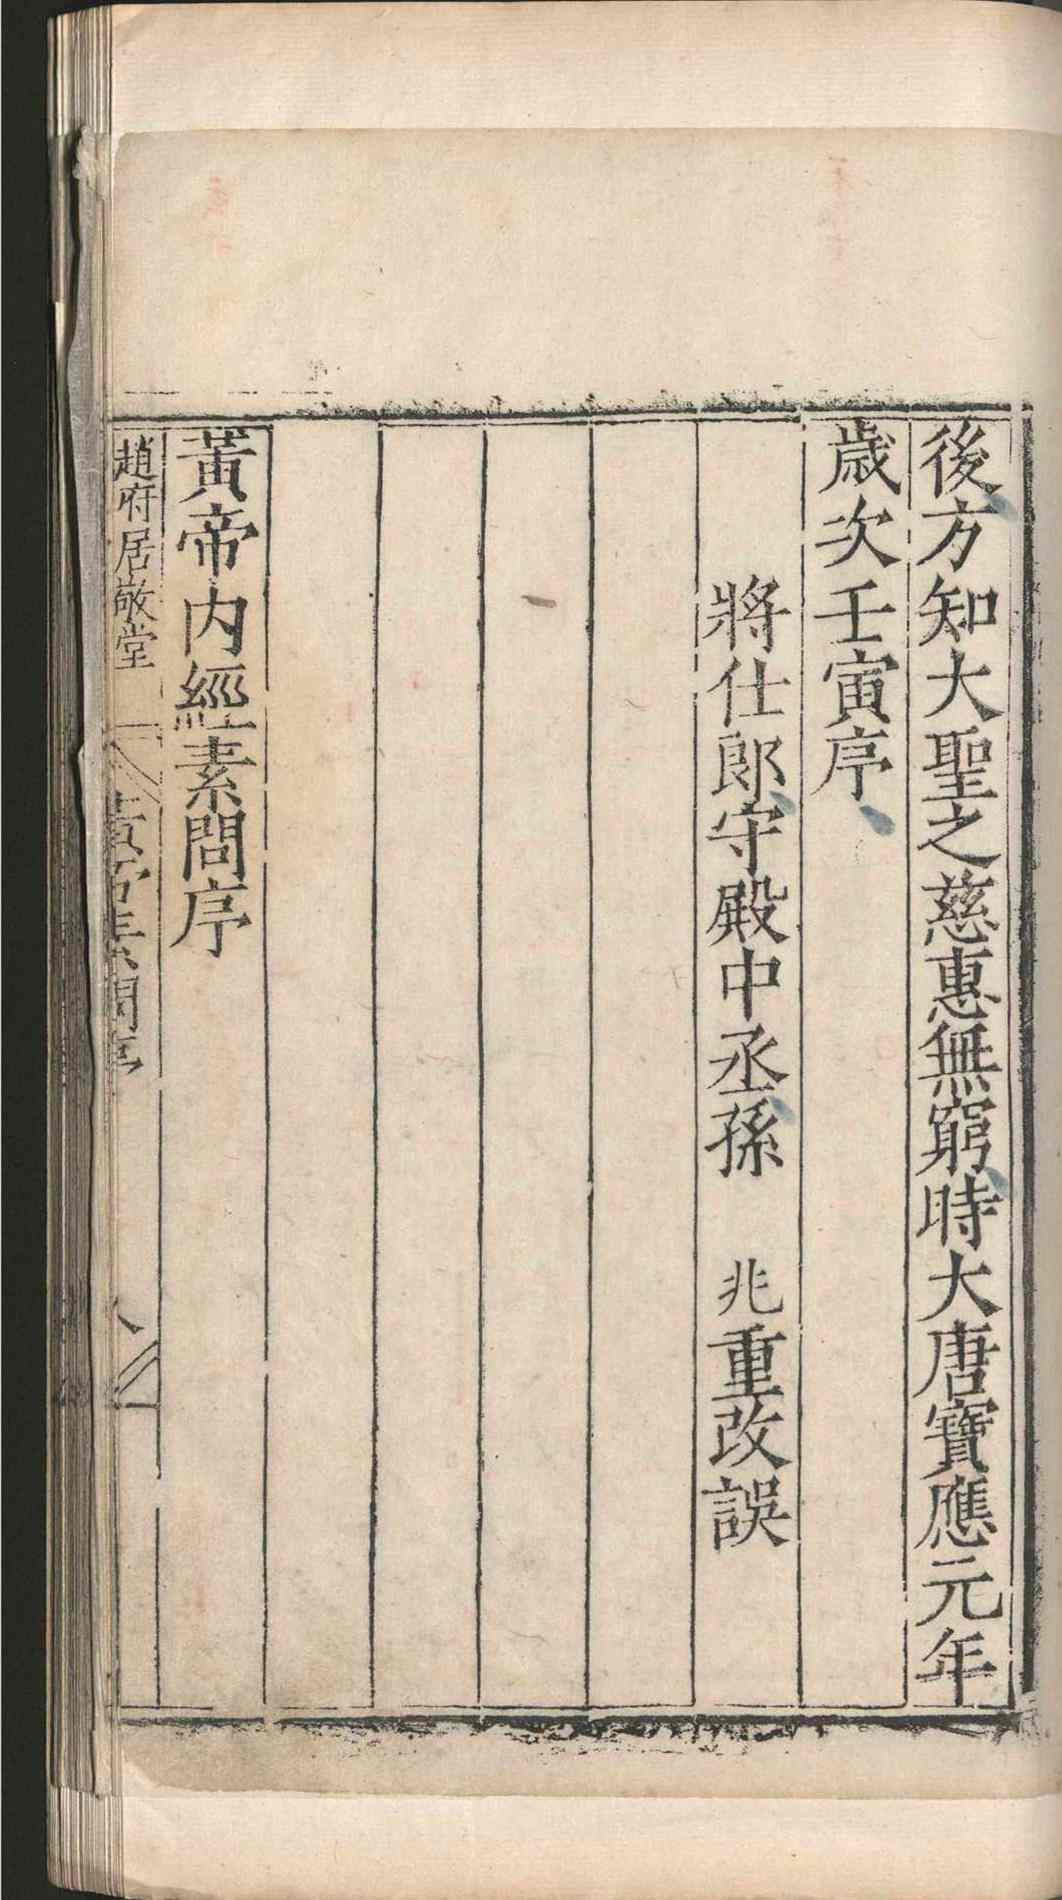 後方知大聖之慈惠無窮時大唐寶應元年
歲次壬寅序
將仕郎守殿中丞孫　兆重改誤
黃帝内經素問序
趙府居敬堂